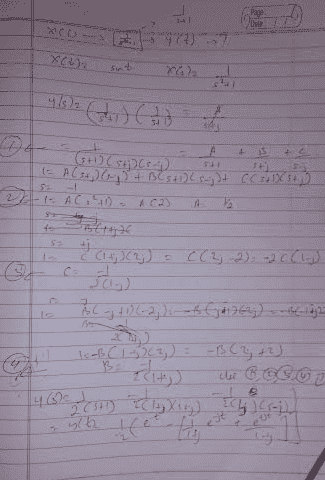 1/(s+1)
Page
Date
x(t) → [1/(s+1)] → y(t) → ?
x(t) = sint X(s) = 1/(s²+1)
Y(s) = (1/(s²+1)) (1/(s+1)) =
① = 1/((s+1)(s+j)(s-j)) = A/(s+1) + B/(s+j) + C/(s-j)
1 = A(s+j)(s-j) + B(s+1)(s-j) + C(s+1)(s+j)
s = -1
② 1 = A(s²+1) = A(2) A = 1/2
s = +j
1 = C(1+j)(2j) = C(2j-2) = -2C(1-j)
③ C = -1/(2(1-j))
1 = B(-j+1)(-2j) = -B(-j+1)(2j)
④ 1 = -B(1-j)(2j) = -B(2j+2)
B = -1/(2(1+j))
Y(s) = 1/(2(s+1)) - 1/(2(1+j)(s+j)) - 1/(2(1-j)(s-j))
= y(t) = 1/2 (e^-t - [1/(1+j) e^-jt + e^jt/(1-j)])